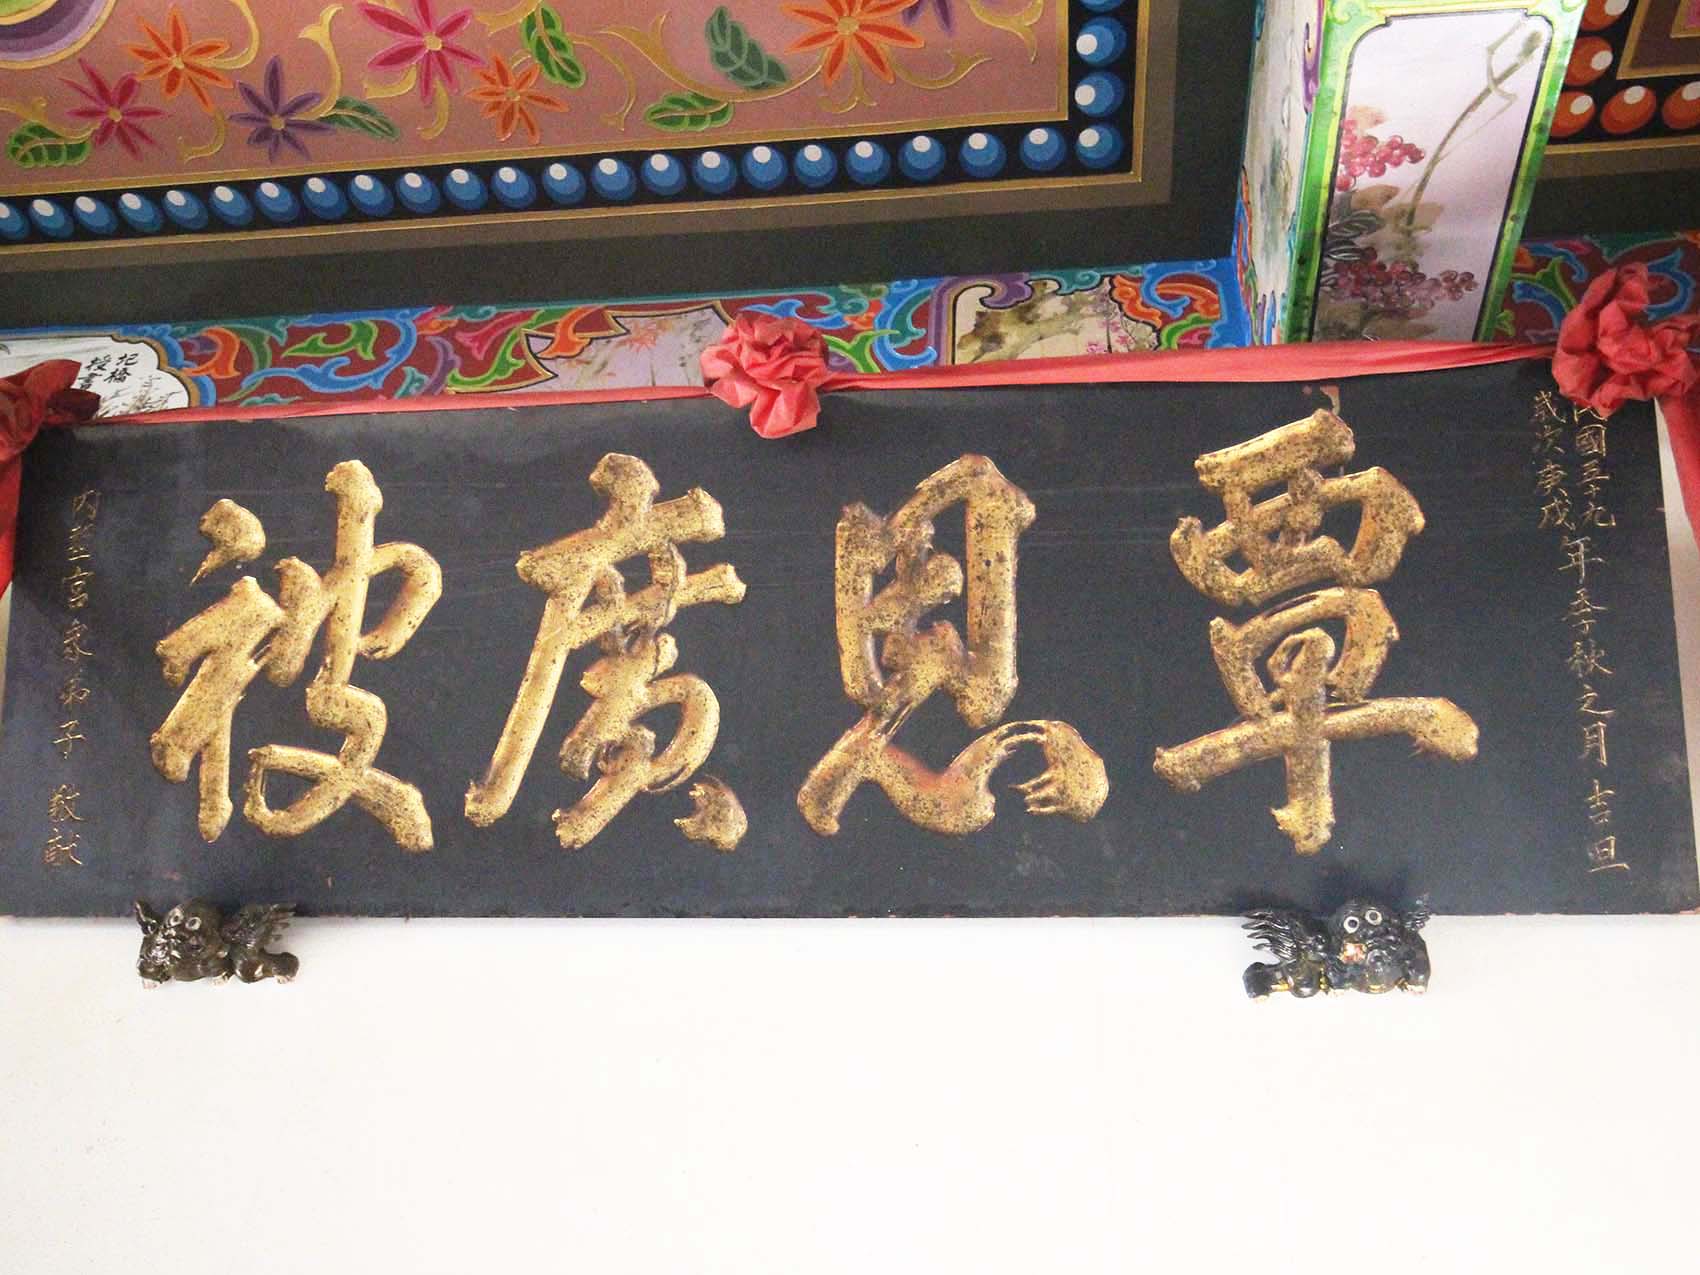 覃恩廣被
民國五十九年季秋之月吉旦
歲次庚戌
內至宮眾弟子 敬献
圯橋
授書